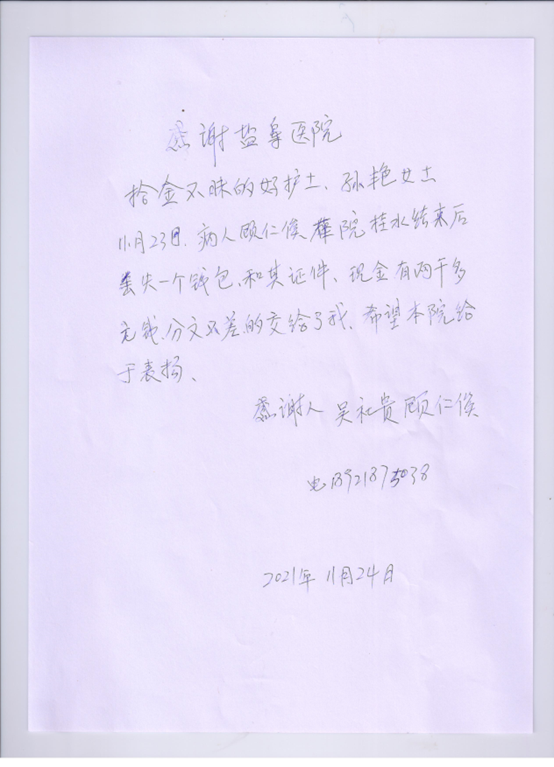 感谢盐阜医院
拾金不昧的好护士、孙艳女士
11月23日.病人顾仁俟 院挂水结束后
丢失一个钱包、和其证件、现金有两千多
元钱、分文不差的交给了我、希望本院给
于表扬、
感谢人 吴社贵 顾仁俟
电 1392187
2021年11月24日